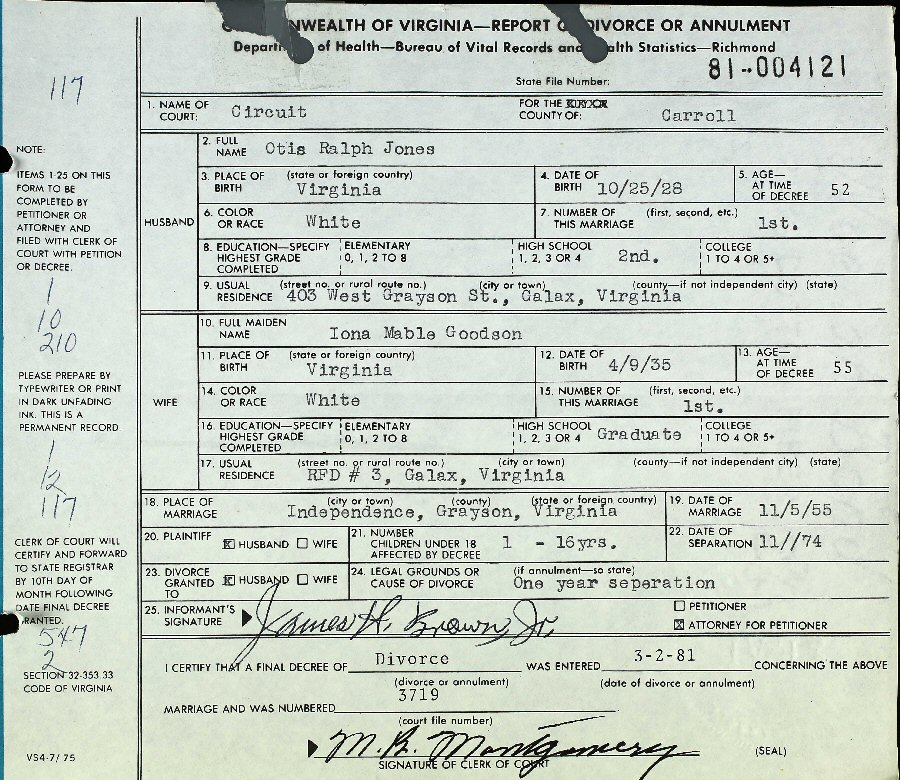 NWEALTH OF VIRGINIA—REPORT DIVORCE OR ANNULMENT
of Health—Bureau of Vital Records and Statistics—Richmond
State File Number: 81-004121
117
1. NAME OF COURT: Circuit FOR THE COUNTY OF: Carroll
NOTE:
ITEMS 1-25 ON THIS
FORM TO BE
COMPLETED BY
PETITIONER OR
ATTORNEY AND
FILED WITH CLERK OF
COURT WITH PETITION
OR DECREE.
1
10
210
PLEASE PREPARE BY
TYPEWRITER OR PRINT
IN DARK UNFADING
INK. THIS IS A
PERMANENT RECORD
1
12
117
CLERK OF COURT WILL
CERTIFY AND FORWARD
TO STATE REGISTRAR
BY 10TH DAY OF
MONTH FOLLOWING
DATE FINAL DECREE
RANTED.
547
2
SECTION 32-353.33
CODE OF VIRGINIA
VS4-7/75
HUSBAND
2. FULL NAME Otis Ralph Jones
3. PLACE OF BIRTH (state or foreign country) Virginia 4. DATE OF BIRTH 10/25/28 5. AGE— AT TIME OF DECREE 52
6. COLOR OR RACE White 7. NUMBER OF THIS MARRIAGE (first, second, etc.) 1st.
8. EDUCATION—SPECIFY HIGHEST GRADE COMPLETED ELEMENTARY 0, 1, 2 TO 8 HIGH SCHOOL 1, 2, 3 OR 4 2nd. COLLEGE 1 TO 4 OR 5+
9. USUAL RESIDENCE (street no. or rural route no.) (city or town) (county—if not independent city) (state) 403 West Grayson St., Galax, Virginia
WIFE
10. FULL MAIDEN NAME Iona Mable Goodson
11. PLACE OF BIRTH (state or foreign country) Virginia 12. DATE OF BIRTH 4/9/35 13. AGE— AT TIME OF DECREE 55
14. COLOR OR RACE White 15. NUMBER OF THIS MARRIAGE (first, second, etc.) 1st.
16. EDUCATION—SPECIFY HIGHEST GRADE COMPLETED ELEMENTARY 0, 1, 2 TO 8 HIGH SCHOOL 1, 2, 3 OR 4 Graduate COLLEGE 1 TO 4 OR 5+
17. USUAL RESIDENCE (street no. or rural route no.) (city or town) (county—if not independent city) (state) RFD # 3, Galax, Virginia
18. PLACE OF MARRIAGE (city or town) (county) (state or foreign country) Independence, Grayson, Virginia 19. DATE OF MARRIAGE 11/5/55
20. PLAINTIFF ☒ HUSBAND ☐ WIFE 21. NUMBER CHILDREN UNDER 18 AFFECTED BY DECREE 1 - 16yrs. 22. DATE OF SEPARATION 11//74
23. DIVORCE GRANTED TO ☒ HUSBAND ☐ WIFE 24. LEGAL GROUNDS OR CAUSE OF DIVORCE (if annulment—so state) One year seperation
25. INFORMANT'S SIGNATURE James H. Brown, Jr. ☐ PETITIONER
☒ ATTORNEY FOR PETITIONER
I CERTIFY THAT A FINAL DECREE OF Divorce WAS ENTERED 3-2-81 CONCERNING THE ABOVE
(divorce or annulment) (date of divorce or annulment)
MARRIAGE AND WAS NUMBERED 3719
(court file number)
M. B. Montgomery (SEAL)
SIGNATURE OF CLERK OF COURT